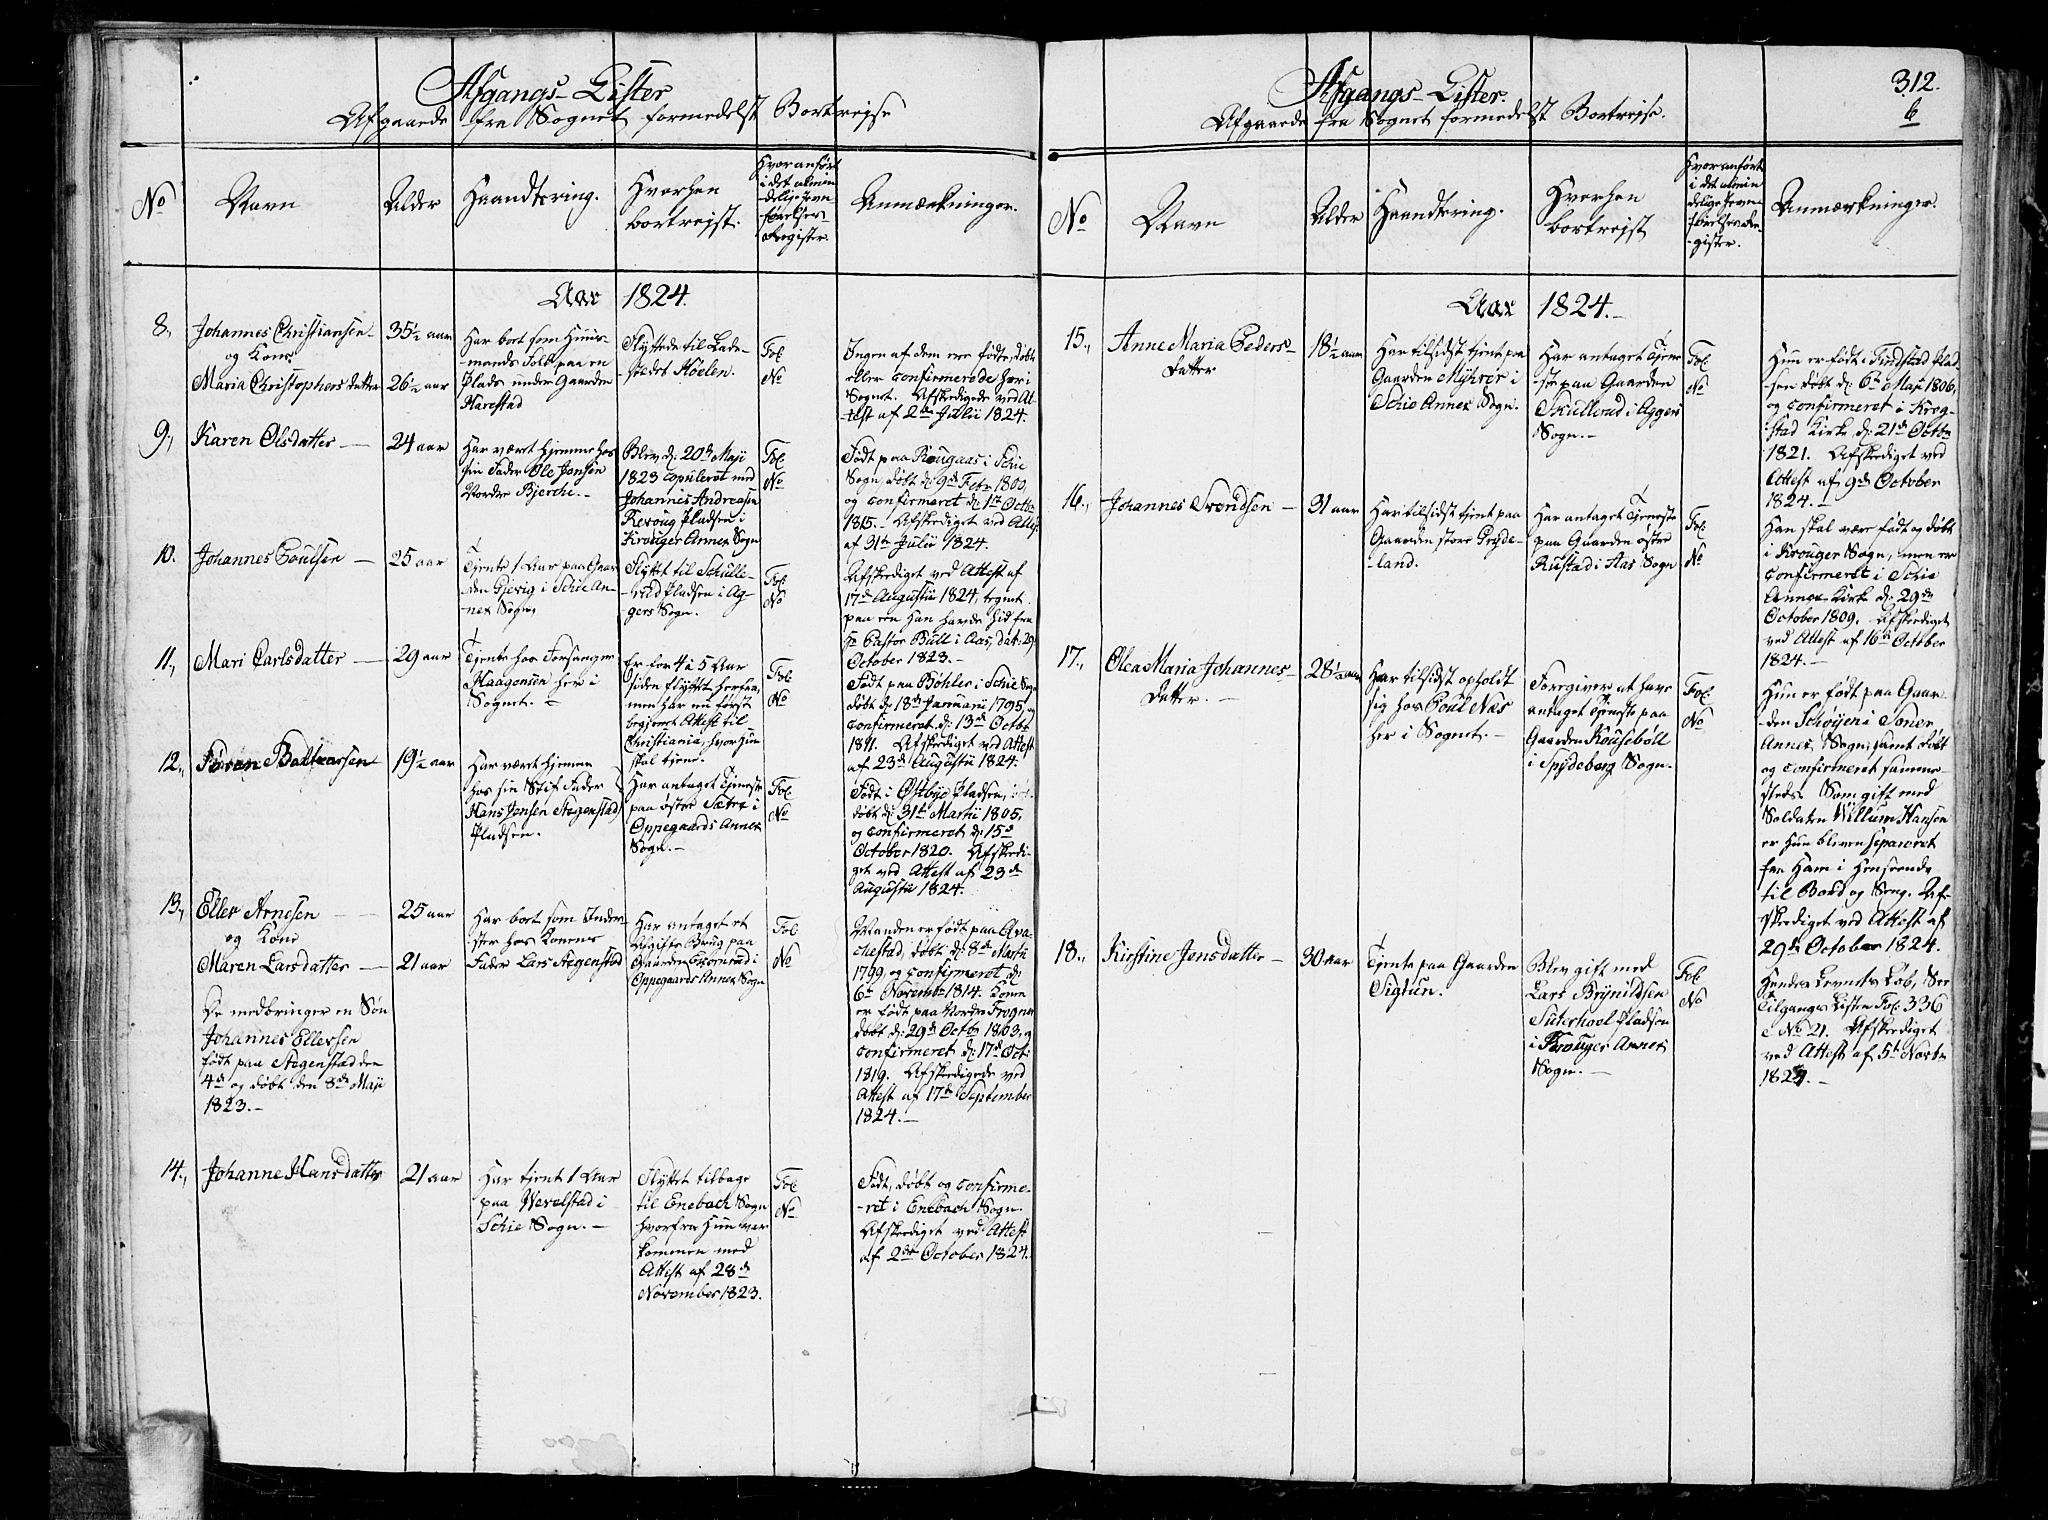 Afgangs-Lister
Afgaaede fra Sognet formedelst Bortrejse
No
Navn
Alder
Haandtering.
Hvorhen
bortrejst.
Hvor anført
i det almin
delige Jevn
førelses-
Register.
Anmærkninger.
Aar 1824.
8.,
Johannes Christiansen
og Kone
Maria Christophersdatter
35½ aar
26½ aar
Har boet som Huus-
mands Folk paa en
Plads under Gaarden
Harestad
Flyttede til Lade-
stedet Høelen.
Fol
No
Ingen af dem ere fødte, døbte
eller confirmerede her i
Sognet. Afskedigede ved At-
test af 2den Julii 1824.
9.,
Karen Olsdatter
24 aar
Har været hjemme hos
sin Fader Ole Jensen
Nordre Bjerche.
Blev d: 20de Maji
1823 copuleret med
Johannes Andreasen
Pladsen i
Krouger Annex Sogn
Fol
No
Født paa Rougaas i Schie
Sogn, døbt d: 9de Febr. 1800,
og confirmeret d: 1ste Octbr
1815. Afskediget ved Attest
af 31te Julii 1824.
10.
Johannes Poulsen
25 aar
Tjente 1 Aar paa Gaar
den Gjevig i Schie An-
nex Sogn
Flyttet til Schulle-
rud Pladsen i Ag-
gers Sogn.
Fol
No
Afskediget ved Attest af
17de Augustii 1824, tegnet
paa een Han havde hid fra
Hr Pastor Bull i Aas, dat: 29
October 1823.
11.,
Mari Carlsdatter
29 aar
Tjente hos Forsanger
Haagensen her i
Sognet.
Er for 4 à 5 Aar
siden flyttet herfra,
men har nu først
begjæret Attest til
Christiania, hvor Hun
skal tjene.
Fol
No
Født paa Bøhler i Schie Sogn
døbt d: 18de Januarii 1795, og
confirmeret d: 13de Octbr
1811. Afskediget ved Attest
af 23de Augustii 1824.
12.,
Søren Baltzersen
19½ aar
Har været hjemme
hos sin Stif Fader
Hans Jensen Stegenstad
Pladsen.
Har antaget Tjeneste
paa østre Sætre i
Oppegaards Annex
Sogn.
Fol
No
Født i Østbye Pladsen,
døbt d: 31te Martii 1805,
og confirmeret d: 15de
October 1820. Afskedi-
get ved Attest af 23de
Augustii 1824.
13.,
Eller Arnesen
og Kone
Maren Larsdatter
De medbringer en Søn
Johannes Ellersen
født paa Stegenstad den
4de og døbt den 8de Maji
1823.
25 aar
21 aar
Har boet som Inder-
ster hos Konens
Fader Lars Stegenstad
Har antaget et
Afgifts Brug paa
Gaarden Bjørnrud i
Oppegaards Annex Sogn
Fol
No
Manden er født paa Ara-
chestad, døbt d: 8de Martii
1799 og confirmeret d:
6te Novembr 1814. Konen
er født paa Nordre Frogner
døbt d: 29de Octbr 1803, og
confirmeret d: 17de Oct:
1819. Afskedigede ved
Attest af 17de September
1824.
14.,
Johanne Hansdatter
21 aar
Har tjent 1 Aar
paa Vevelstad i
Schie Sogn.
Flyttet tilbage
til Enebach Sogn
hvorfra Hun var
kommen med
Attest af 28de
November 1823.
Fol
No
Født, døbt og confirme-
ret i Enebach Sogn.
Afskediget ved Attest
af 2den October 1824.
312.
6
Afgangs-Lister.
Afgaaede fra Sognet formedelst Bortrejse.
No
Navn
Alder
Haandtering.
Hvorhen
bortrejst
Hvor anført
i det almin
delige Jevn-
førelses Re-
gister.
Anmærkninger.
Aar 1824.
15.,
Anne Maria Peders-
Datter
18½ aar
Har tilsidst tjent paa
Gaarden Myhrer i
Schie Annex Sogn.
Har antaget Tjene-
ste paa Gaarden
Skullerud i Aggers
Sogn.
Fol
No
Hun er født i Findstad Plad-
sen døbt d: 6te Maji 1806,
og confirmeret i Krog-
stad Kirke d: 21de Octbr
1821. Afskediget ved
Attest af 9de October
1824.
16.,
Johannes Svendsen
31 aar
Har tilsidst tjent paa
Gaarden store Gryde-
land.
Har antaget Tjeneste
paa Gaarden østre
Rustad i Aas Sogn
Fol
No
Han skal være født og døbt
i Krouger Sogn, men er
confirmeret i Schie
Annex Kirke d: 29de
October 1809. Afskediget
ved Attest af 16de October
1824.
17.,
Olea Maria Johannes-
Datter.
28½ aar
Har tilsidst opholdt
sig hos Poul Næs
her i Sognet.
Foregiver at have
antaget Tjeneste paa
Gaarden Kousebøll
i Spydeberg Sogn.
Fol
No
Hun er født paa Gaar-
den Schøyen i Soner
Annex Sogn, samt døbt
og confirmeret samme-
steds. Som gift med
Soldaten Willum Hansen
er Hun bleven separeret
fra Ham i Henseende
til Bord og Seng. Af-
skediget ved Attest af
29de October 1824.
18.,
Kirstine Jensdatter
30 aar
Tjente paa Gaarden
Sigtun.
Blev gift med
Lars Brynildsen
Suterhoel Pladsen
i Krouger Annex
Sogn.
Fol
No
Hendes Levnets Løb, See
Tilgangs Listen Fol. 336
No 21. Afskediget
ved Attest af 5te Novbr
1824.